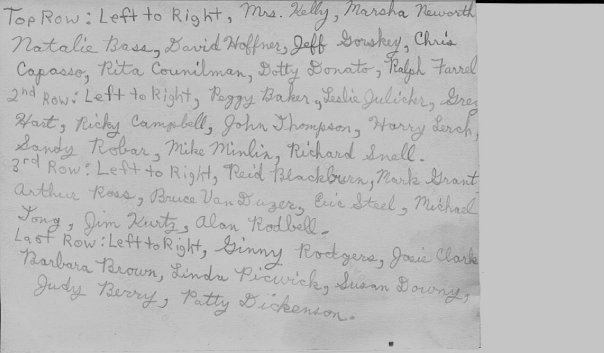 Top Row: Left to Right, Mrs. Kelly, Marsha Neworth
Natalie Bass, David Hoffner, Jeff Gowskey, Chris
Capasso, Rita Counilman, Dotty Donato, Ralph Farrel
2nd Row: Left to Right, Peggy Baker, Leslie Julicher, Greg
Hart, Ricky Campbell, John Thompson, Harry Lerch,
Sandy Robar, Mike Minlin, Richard Snell.
3rd Row: Left to Right, Reid Blackburn, Mark Grant
Arthur Ross, Bruce Van Duzer, Eric Steel, Michael
Tong, Jim Kurtz, Alan Rodbell.
Last Row: Left to Right, Ginny Rodgers, Josie Clark
Barbara Brown, Linda Picwick, Susan Downy,
Judy Berry, Patty Dickenson.